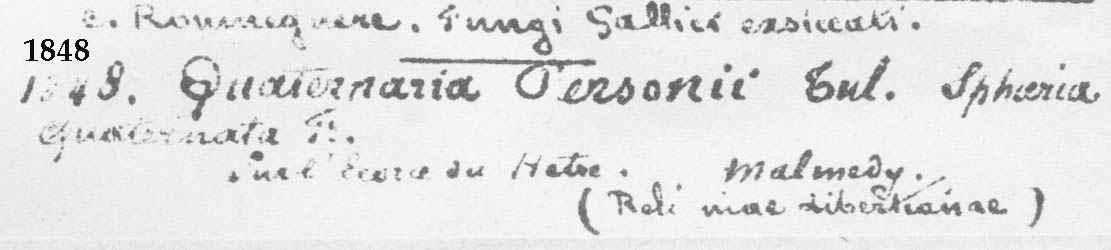 C. Roumeguere. Fungi Gallici exsiccati.
1848
1848. Quaternaria Personii Tul. Sphæria
quaternata Fr.
Sur l'Ecorce du Hetre. Malmedy.
(Reliquiae Libertianae)